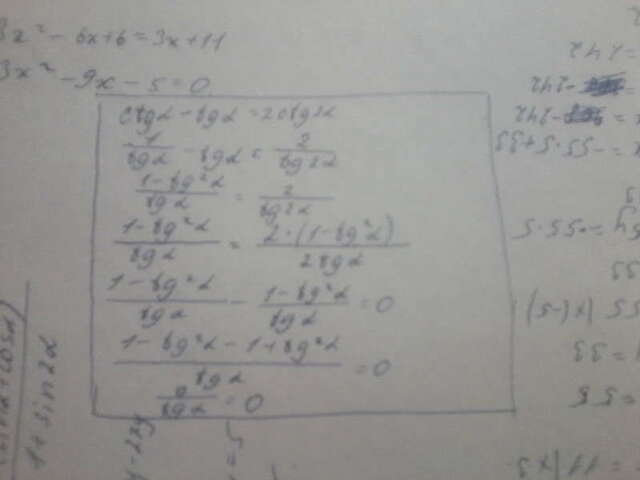 3x² - 6x + 6 = 3x + 11
3x² - 9x - 5 = 0
ctgα - tgα = 2ctg2α
1/tgα - tgα = 2/tg2α
(1 - tg²α)/tgα = 2/tg2α
(1 - tg²α)/tgα = 2·(1 - tg²α)/2tgα
(1 - tg²α)/tgα - (1 - tg²α)/tgα = 0
(1 - tg²α - 1 + tg²α)/tgα = 0
0/tgα = 0
1 + sin2α
= 242
- 242
= - 242
= -55·5+33
= 55·5
55
= 33
= 55